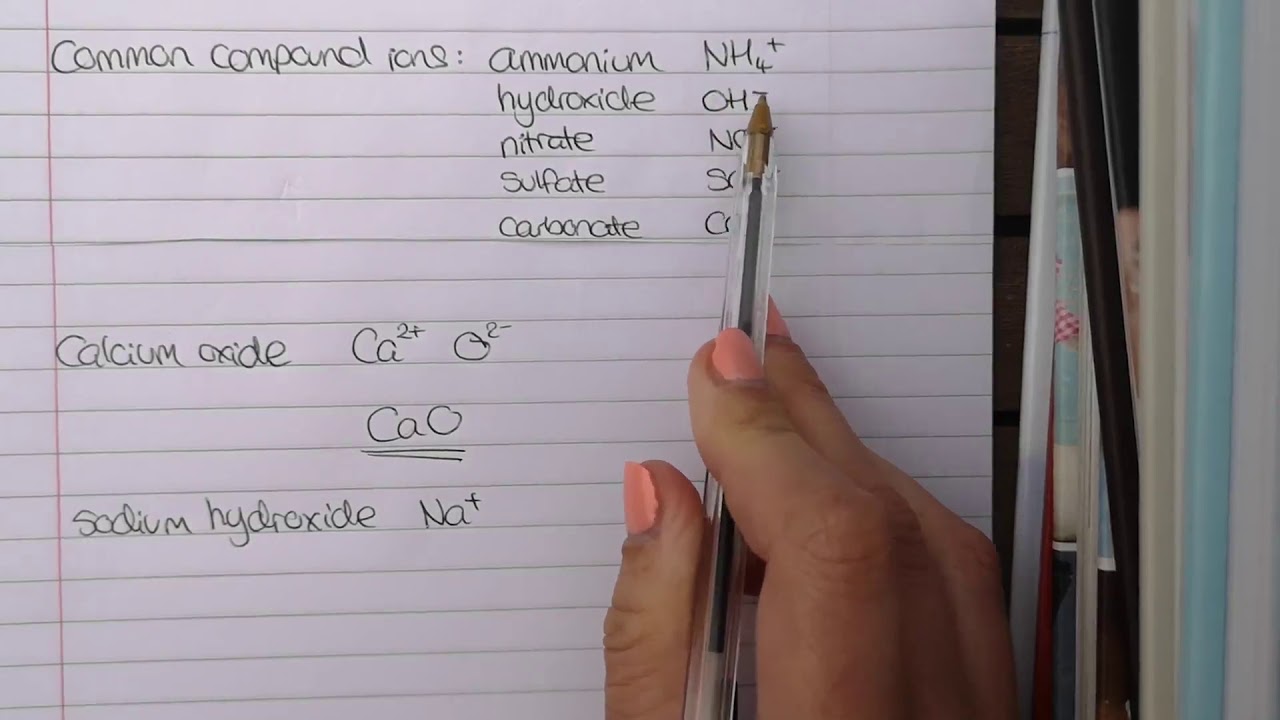 Common compound ions: ammonium NH₄⁺
hydroxide OH⁻
nitrate
sulfate
carbonate
Calcium oxide Ca²⁺ O²⁻
CaO
sodium hydroxide Na⁺